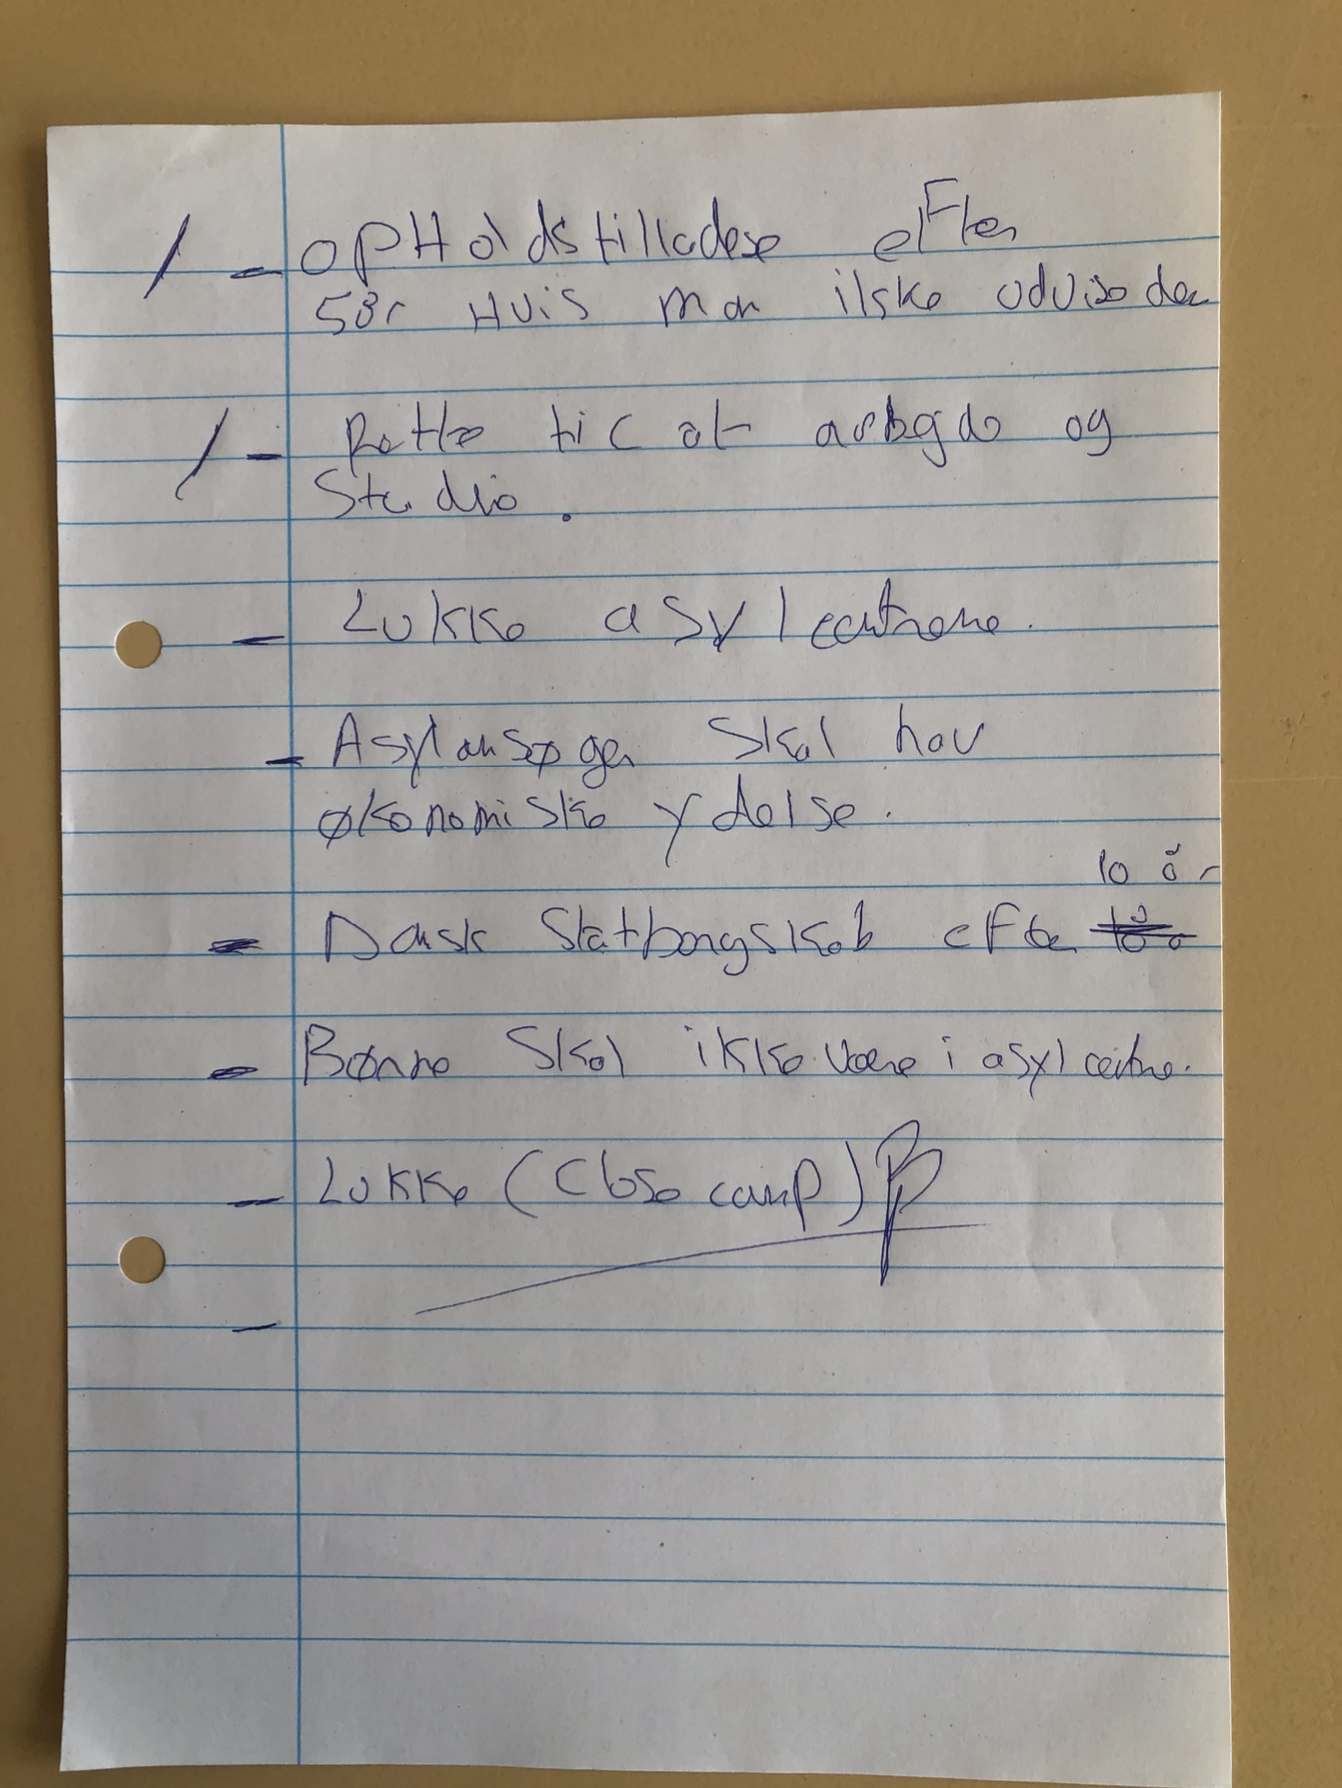 / - OPHoldstilladese efter
5år Hvis man ikke udvise den
/ - Rette til at arbejde og
Studie.
- Lukke asylcentrene.
- Asylansøger Skal hav
økonomiske ydelse.
10 år
- Dansk Statborgskab efte
- Børnne Skal ikke være i asylcentre.
- Lukke (Close camp)
-